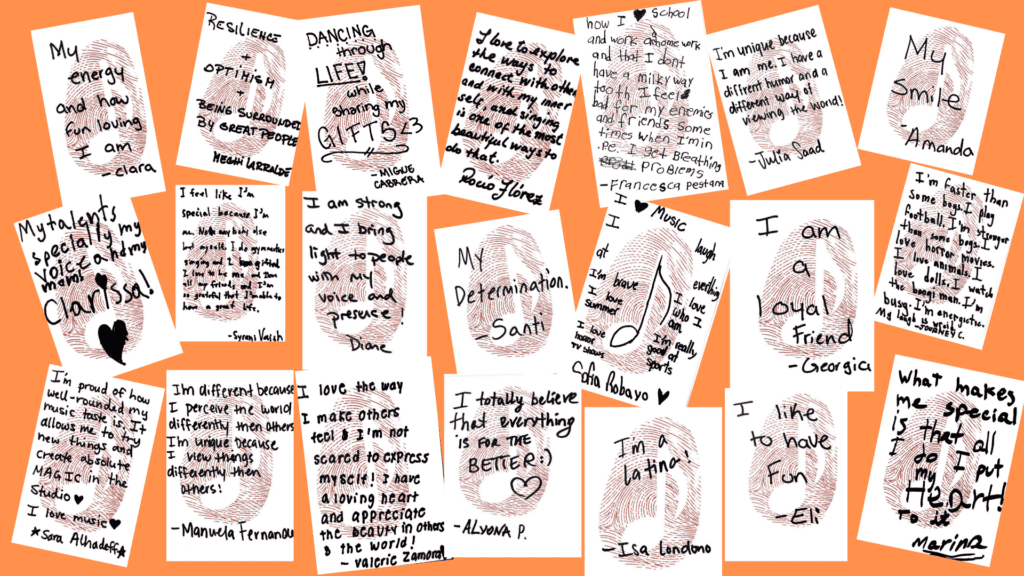 My
energy
and how
fun loving
I am
-clara
RESILIENCE
+
OPTIMISM
+
BEING SURROUNDED
BY GREAT PEOPLE
MEGHI LARRALDE
DANCING
through
LIFE!
while
sharing my
GIFTS <3
-MIGUE
CABRERA
I love to explore
the ways to
connect with others
and with my inner
self, and singing
is one of the most
beautiful ways to
do that.
Rocio Flórez
how I ♥ School
and work at home work
and that I dont
have a milky way
tooth I feel
bad for my enemies
and friends some
times when I'm in
.pe. I get Breathing
PROBLEMS
-Francesca Pestana
I'm unique because
I am me. I have a
diffrent humor and a
different way of
viewing the world!
-Julia Saad
My
Smile
-Amanda
My talents
specially my
voice and my
moms
Clarissa!
I feel like I'm
special because I'm
me. Not anybody else
but myself. I do gymnastics
singing and I gifted
I love to be me and I love
all my friends and I'm
so grateful that I'm able to
have a great life.
I am strong
and I bring
light to people
with my
voice and
presence!
Diane
My
Determination.
-Santi
I ♥ Music
I laugh
at everthing
I'm brave
I love
summer
I love
who I
am
I love
horror
TV shows
I'm really
good at
sports
Sofia Robayo ♥
I am
a
loyal
Friend
-Georgia
I'm faster than
some boys. I play
football. I'm stronger
than some boys. I
love horror movies.
I love animals. I
love dolls. I watch
the boogi man. I'm
busy. I'm energetic.
My laugh is weird.
-JOURNEY C.
I'm proud of how
well-rounded my
music taste is. It
allows me to try
new things and
create absolute
MAGIC in the
Studio ♥
I love music ♥
★Sara Alhadeff★
I'm different because
I perceive the world
differently then others
I'm unique because
I view things
differently then
others!
-Manuela Fernanda
I love the way
I make others
feel & I'm not
scared to express
myself! I have
a loving heart
and appreciate
the beauty in others
& the world!
- Valerie Zamora
I totally believe
that everything
IS FOR THE
BETTER :)
-ALYONA P.
I'm a
Latina!
-Isa Londono
I like
to have
Fun
-Eli
What makes
me special
is that all
I do I put
my
Heart!
To it
Marina